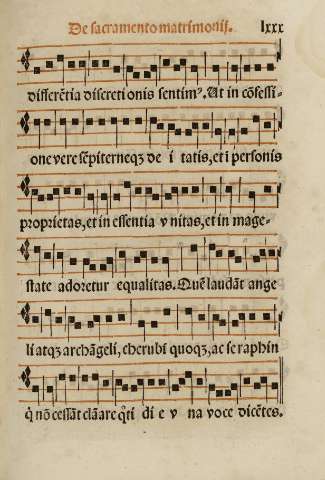 De sacramento matrimonij. lxxx
differẽtia discreti onis sentimꝰ. Ut in cõfessi-
one vere sẽpiterneqꝫ de i tatis, et ĩ personis
proprietas, et in essentia v nitas, et in mage-
state adoretur equalitas. Quẽ laudãt ange
li atqꝫ archãgeli, cherubĩ quoqꝫ, ac se raphin
q̃ nõ cessãt clãare q̃ti di e v na voce dicẽtes.